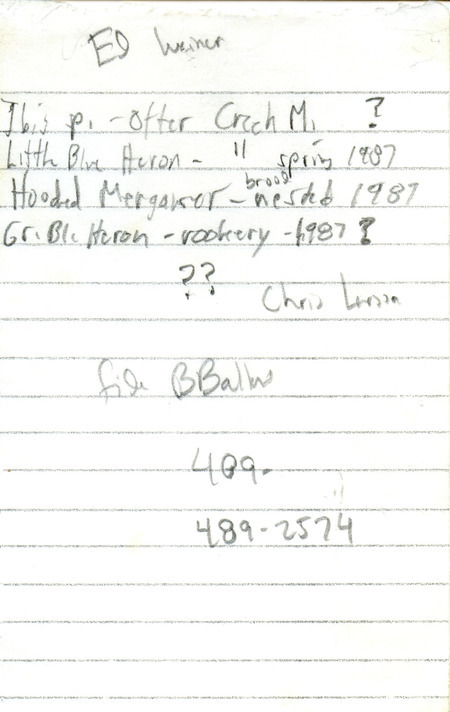 Ed Weiner
Ibis sp. - Otter Creek M. ?
Little Blue Heron - " spring 1987
Hooded Merganser - brood nested 1987
Gr. Bl. Heron - rookery - 1987 ?
??
Chris Larson
file BBatlas
409-
489-2574